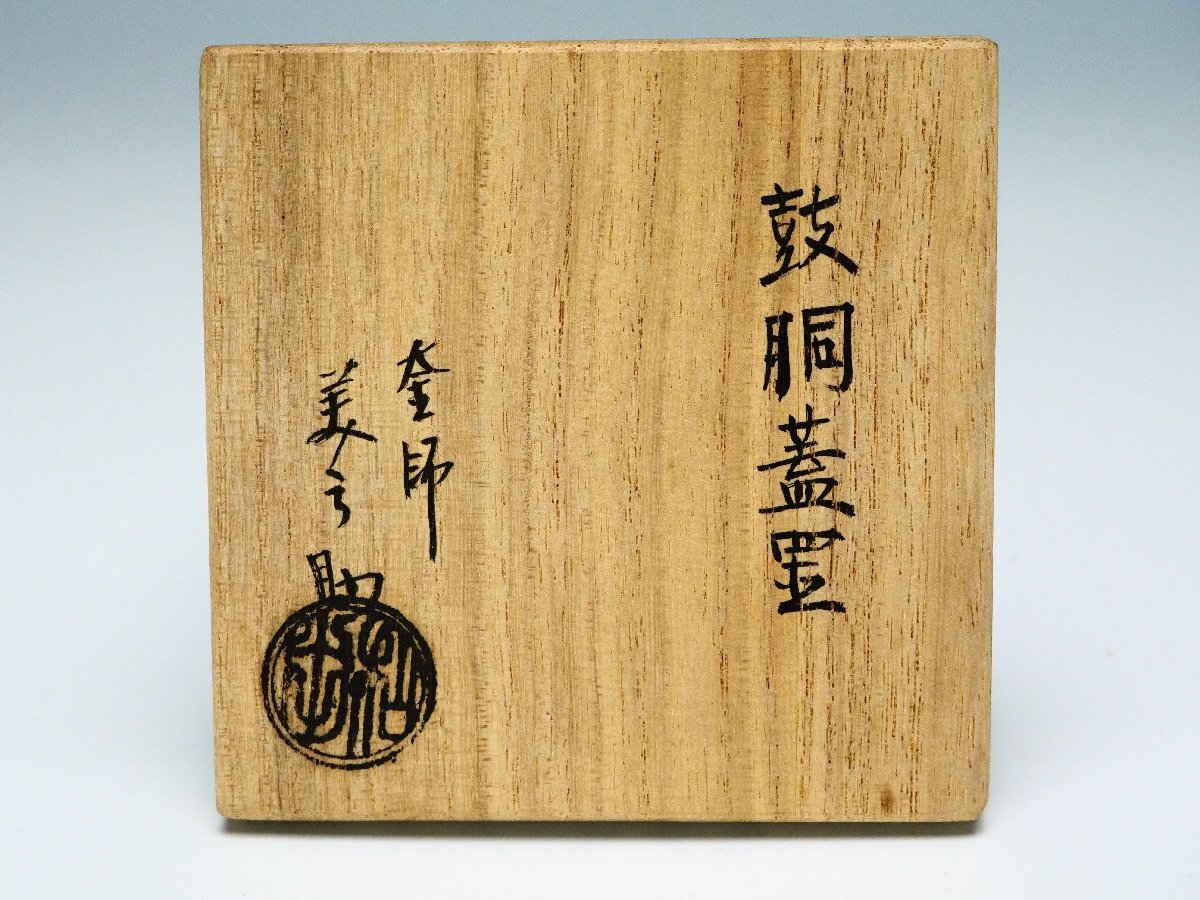 鼓胴蓋置
釜師
美之助